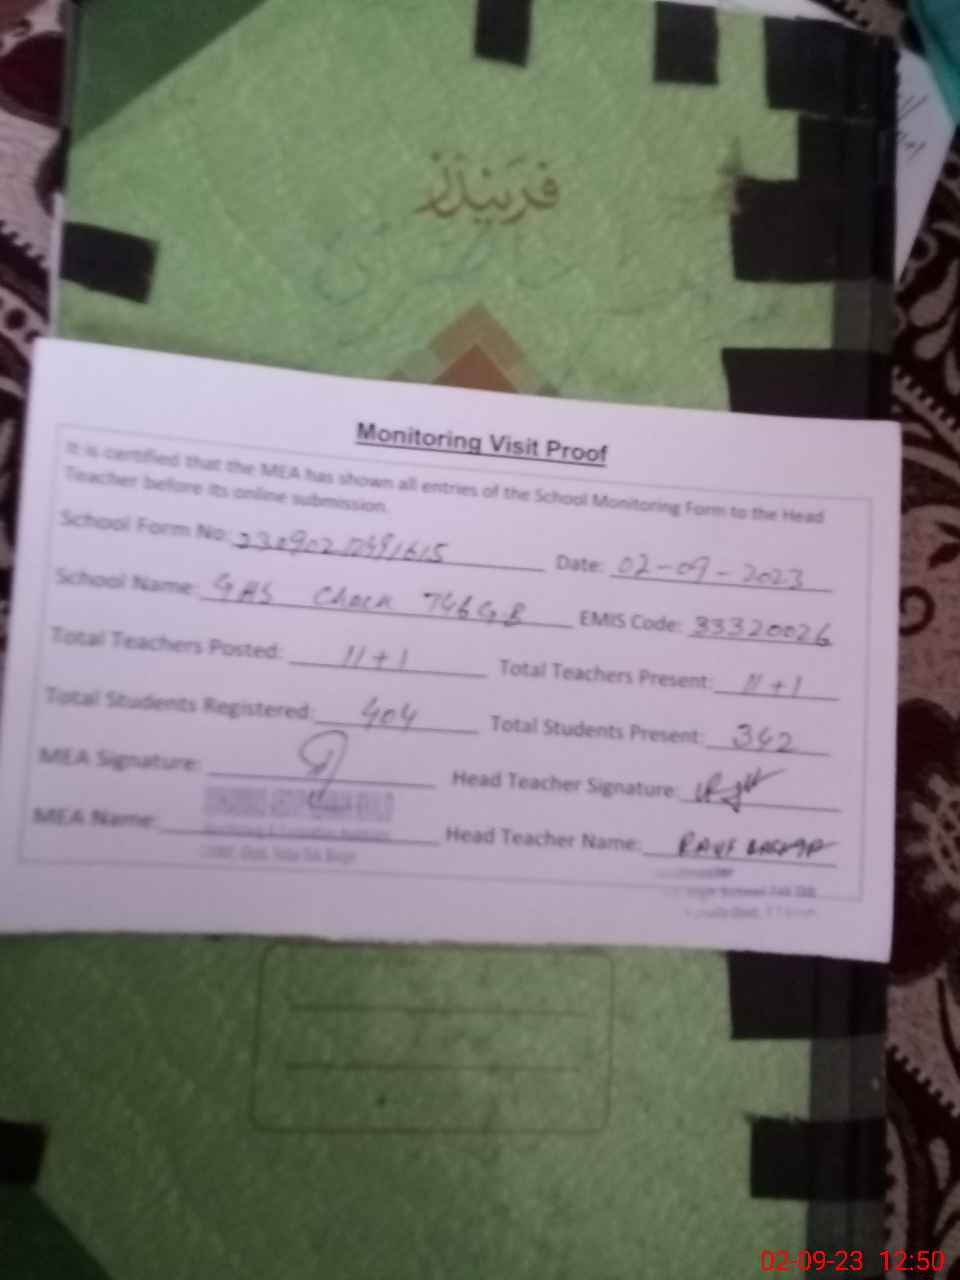 فرینڈز
Monitoring Visit Proof
It is certified that the MEA has shown all entries of the School Monitoring Form to the Head
Teacher before its online submission.
School Form No: Date: 02-09-2023
School Name: GHS Chack 746 GB EMIS Code: 33320026
Total Teachers Posted: 11+1 Total Teachers Present: 11+1
Total Students Registered: 404 Total Students Present: 342
MEA Signature: Head Teacher Signature:
MEA Name: Head Teacher Name: RAUF
02-09-23 12:50